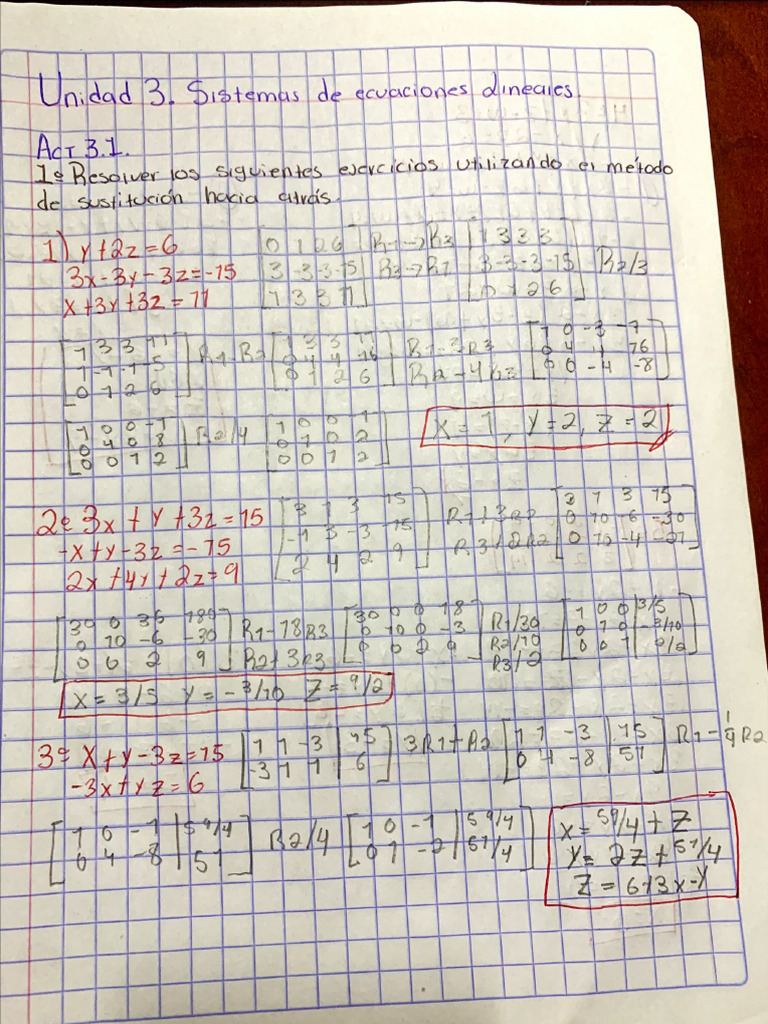 Unidad 3. Sistemas de ecuaciones lineales.
Act 3.1.
1º Resolver los siguientes ejercicios utilizando el método
de sustitución hacia atrás
1) y+2z=6
3x-3y-3z=-15
x+3y+3z=11
[0 1 2 6
3 -3 -3 -15
1 3 3 11]
R1→R3
R3→R1
[1 3 3 3
3 -3 -3 -15
0 1 2 6]
R2/3
[1 3 3 11
1 -1 -1 -5
0 1 2 6]
R1-R2
[1 3 3 11
0 4 4 16
0 1 2 6]
R1-3R3
R2-4R3
[1 0 -3 -7
0 4 16
0 0 -4 -8]
[1 0 0 -1
0 4 0 8
0 0 1 2]
R2/4
[1 0 0 1
0 1 0 2
0 0 1 2]
X=1, Y=2, Z=2
2º 3x+y+3z=15
-x+y-3z=-15
2x+4y+2z=9
[3 1 3 15
-1 3 -3 -15
2 4 2 9]
R1+3R2
R3+2R2
[3 1 3 15
0 10 -6 -30
0 10 -4 -21]
[30 0 36 180
0 10 -6 -30
0 0 2 9]
R1-18R3
R2+3R3
[30 0 0 18
0 10 0 -3
0 0 2 9]
R1/30
R2/10
R3/2
[1 0 0 | 3/5
0 1 0 | -3/10
0 0 1 | 9/2]
X=3/5 Y=-3/10 Z=9/2
3º X+y-3z=15
-3x+yz=6
[1 1 -3 | 15
-3 1 1 | 6]
3R1+R2
[1 1 -3 | 15
0 4 -8 | 51]
R1-¼R2
[1 0 -1 | 59/4
0 4 -8 | 51]
R2/4
[1 0 -1 | 59/4
0 1 -2 | 51/4]
x=59/4+Z
Y=2z+51/4
Z=6+3x-y